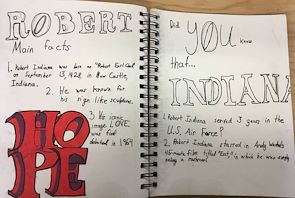 ROBERT
Main facts
1. Robert Indiana was born as "Robert Earl Clark"
on September 13, 1928, in New Castle,
Indiana.
2. He was known for
his sign like sculptures.
3. His iconic
image LOVE
was first
debuted in 1967
HO
PE
Did YOU know
that...
INDIANA
1. Robert Indiana served 3 years in the
U.S. Air Force?
2. Robert Indiana starred in Andy Warhol's
45-minute film titled "Eat", in which he was simply
eating a mushroom